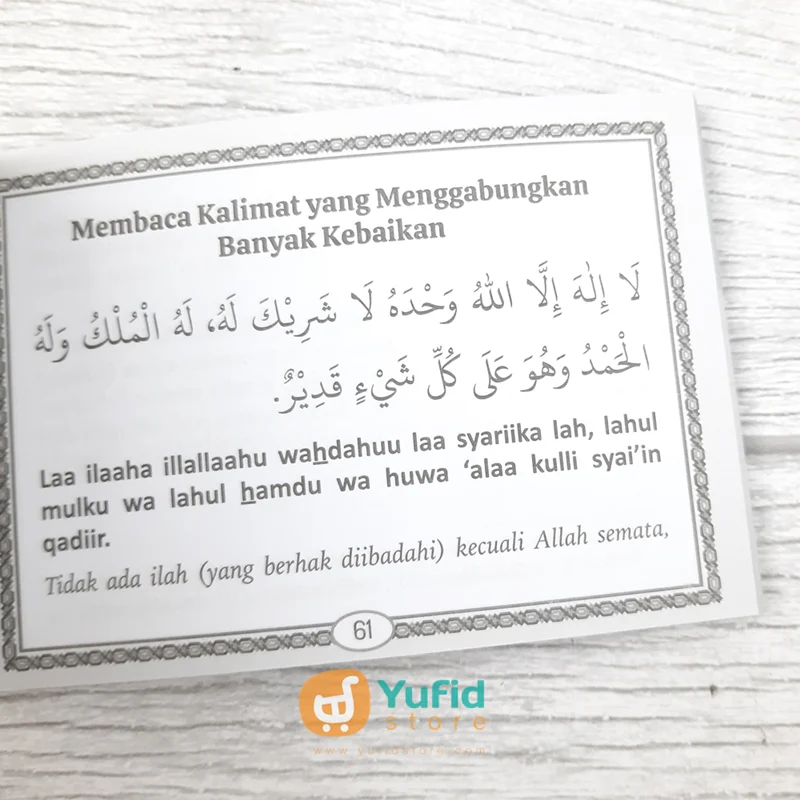 Membaca Kalimat yang Menggabungkan
Banyak Kebaikan
لَا إِلٰهَ إِلَّا اللهُ وَحْدَهُ لَا شَرِيْكَ لَهُ، لَهُ الْمُلْكُ وَلَهُ
الْحَمْدُ وَهُوَ عَلَى كُلِّ شَيْءٍ قَدِيْرٌ.
Laa ilaaha illallaahu wahdahuu laa syariika lah, lahul
mulku wa lahul hamdu wa huwa ‘alaa kulli syai’in
qadiir.
Tidak ada ilah (yang berhak diibadahi) kecuali Allah semata,
61
Yufid
store
www.yufidstore.com